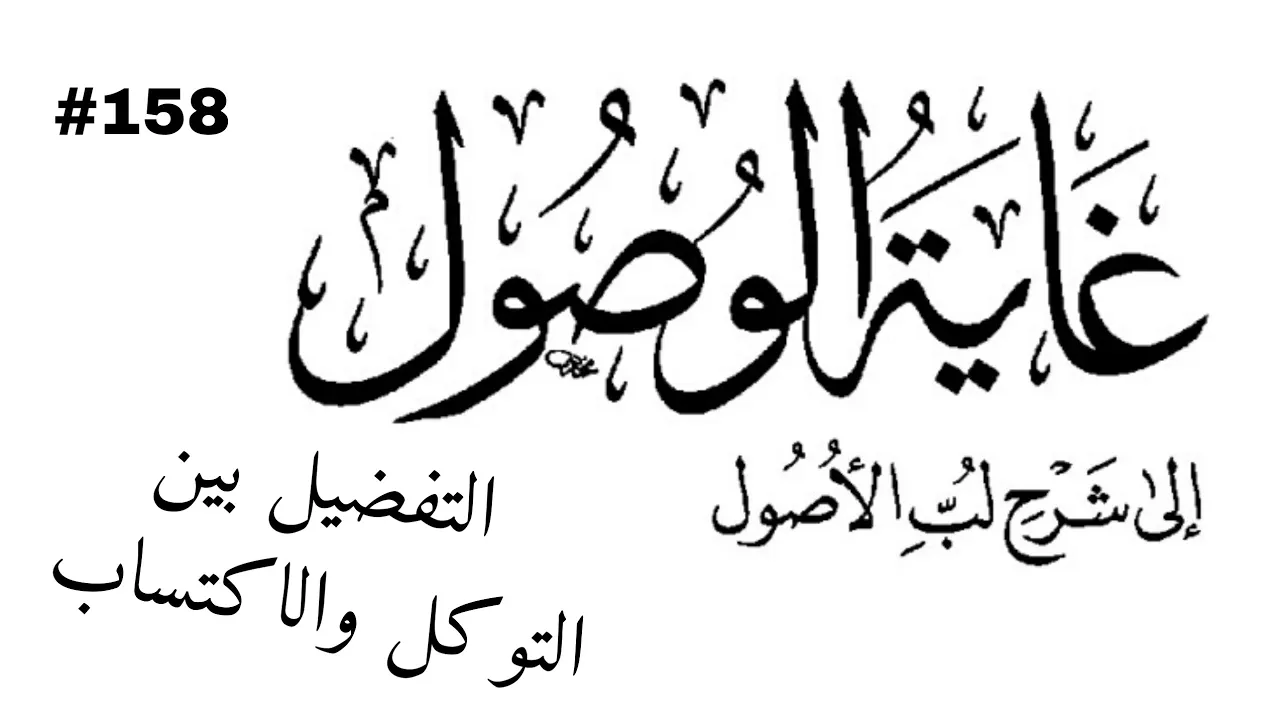 #158
غَايَةُ الْوُصُول
إلىٰ شَرْحِ لُبِّ الأُصُول
التفضيل بين
التوكل والاكتساب